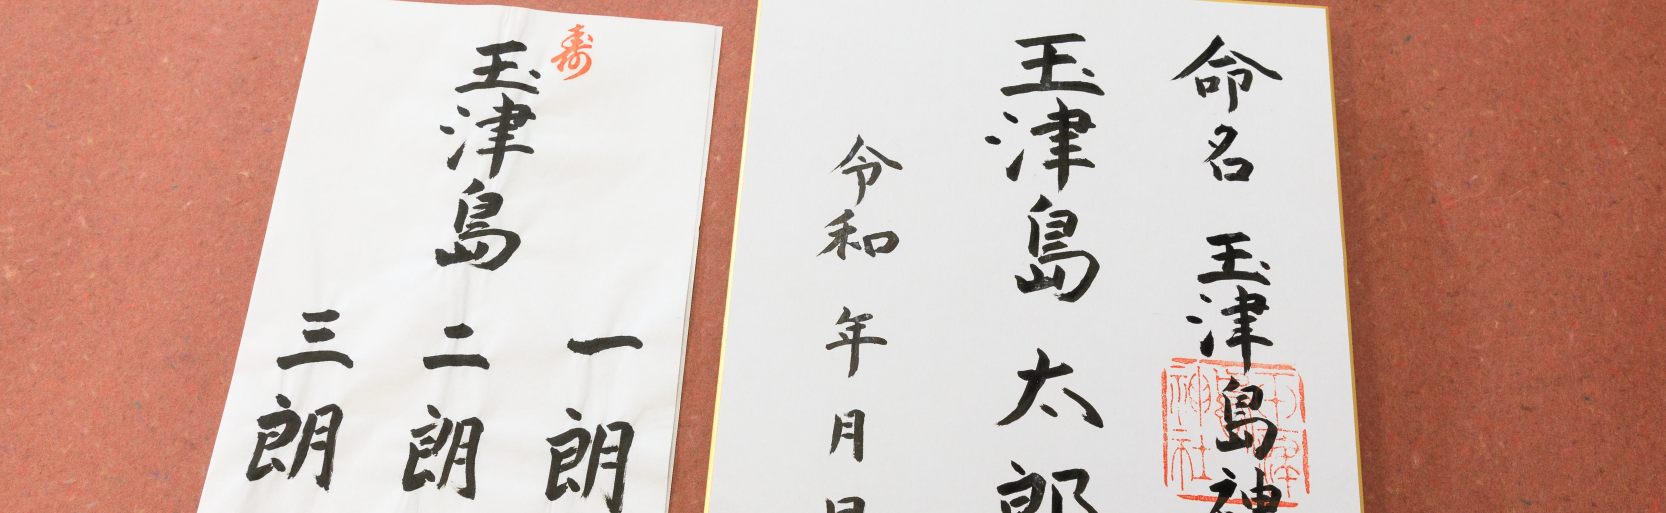 寿
玉津島
一朗
二朗
三朗
命名 玉津島神
玉津島 太郎
令和 年 月 日
玉津島神社